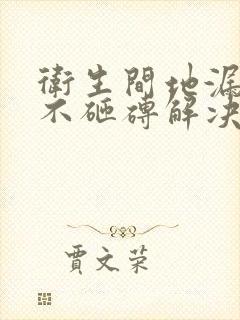 衛生間地漏
不砸磚解決
賈文荣